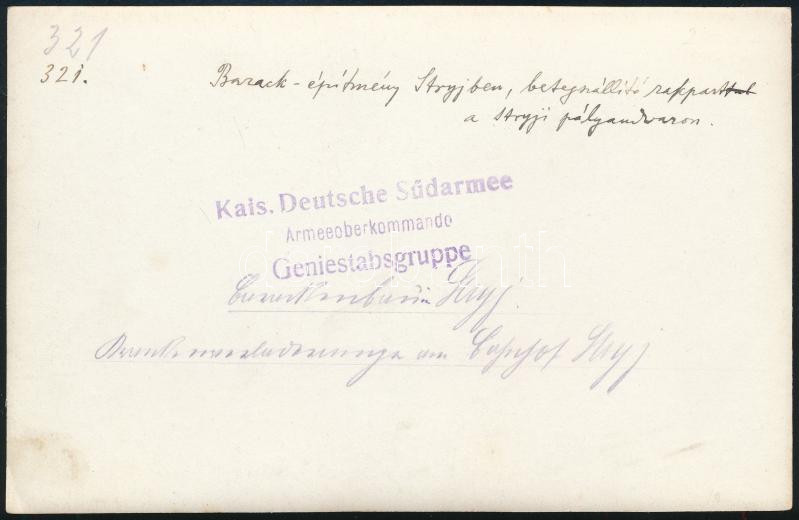 321
321.
Barack-építmény Stryjben, betegszállító rakpart
a stryji pályaudvaron.
Kais. Deutsche Südarmee
Armeeoberkommando
Geniestabsgruppe
Stryj.
am Bahnhof Stryj